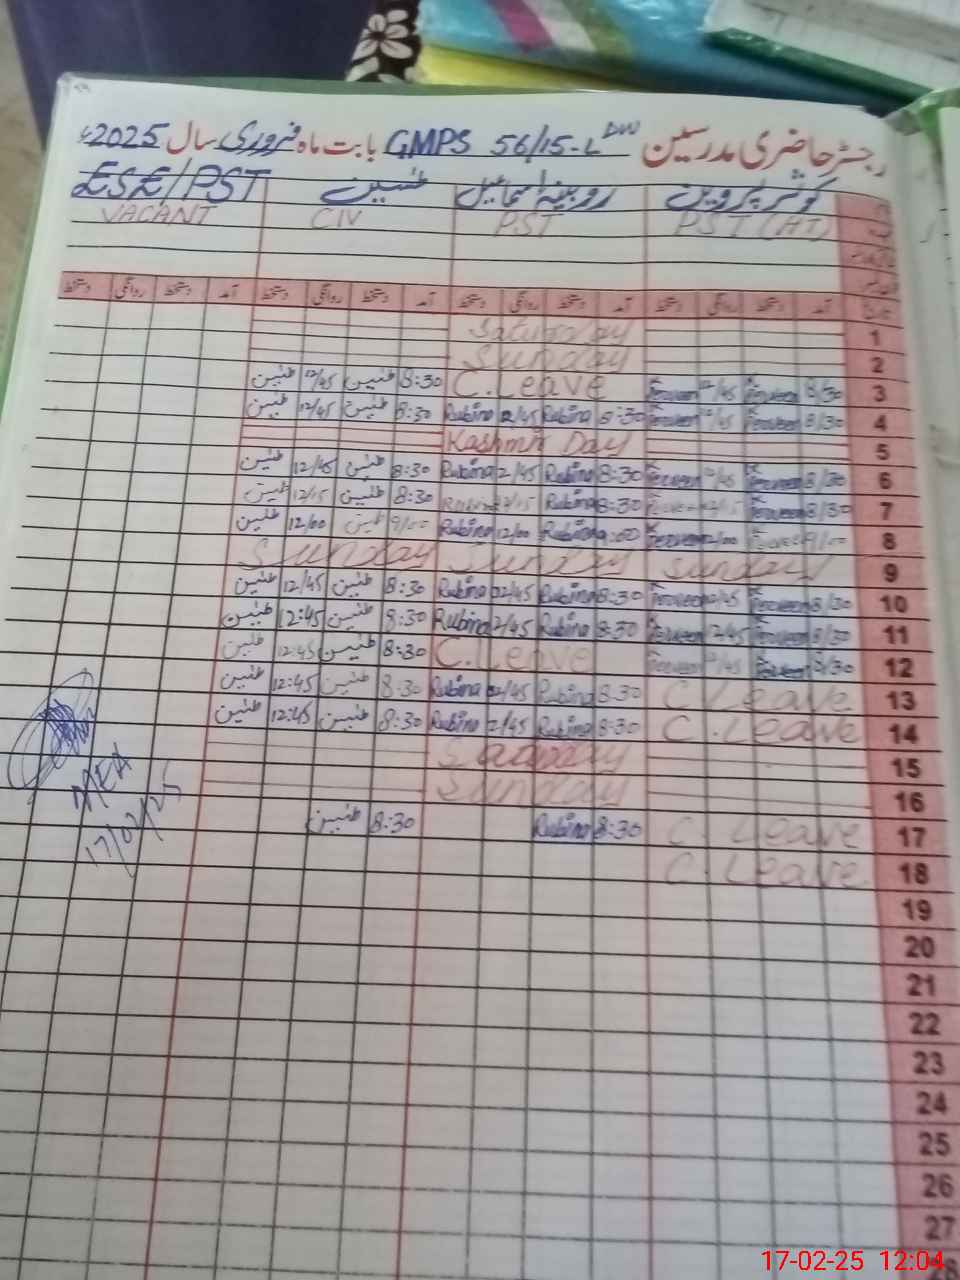 رجسٹر حاضری مدرسین GMPS 56/15-L DW بابت ماہ فروری سال 2025ء
کوثر پروین روبینہ اسماعیل ESE/PST
PST (HT) PST CIV VACANT
تاریخ آمد دستخط روانگی دستخط آمد دستخط روانگی دستخط آمد دستخط روانگی دستخط آمد دستخط روانگی دستخط
1 Saturday
2 Sunday
3 8/30 Perveen 12/45 Perveen C.Leave 8:30 12/45
4 8/30 Perveen 12/45 Perveen 8:30 Rubina 12/45 Rubina 8:30 12/45
5 Kashmir Day
6 8/30 Perveen 12/45 Perveen 8:30 Rubina 12/45 Rubina 8:30 12/45
7 8/30 Perveen 12/15 Perveen 8:30 Rubina 12/15 Rubina 8:30 12/15
8 9/00 Perveen 12/00 Perveen 9:00 Rubina 12/00 Rubina 9/00 12/00
9 Sunday Sunday Sunday
10 8/30 Perveen 12/45 Perveen 8:30 Rubina 12/45 Rubina 8:30 12/45
11 8/30 Perveen 12/45 Perveen 8:30 Rubina 12/45 Rubina 8:30 12:45
12 8/30 Perveen 12/45 Perveen C.Leave 8:30 12:45
13 C.Leave 8:30 Rubina 12/45 Rubina 8:30 12:45
14 C.Leave 8:30 Rubina 12/45 Rubina 8:30 12:45
15
16 Sunday
17 C.Leave 8:30 Rubina 8:30
18 C.Leave
MEA
17/02/25
19
20
21
22
23
24
25
26
27
17-02-25 12:04